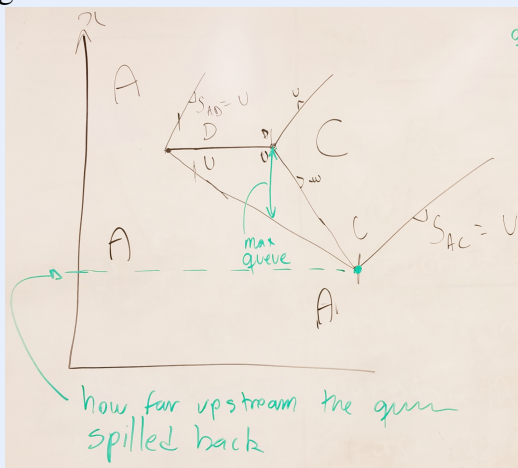 x
A
S_AD = U
D
U
D
U
U
C
w
A
max
queue
C
S_AC = U
A
how far upstream the
spilled back